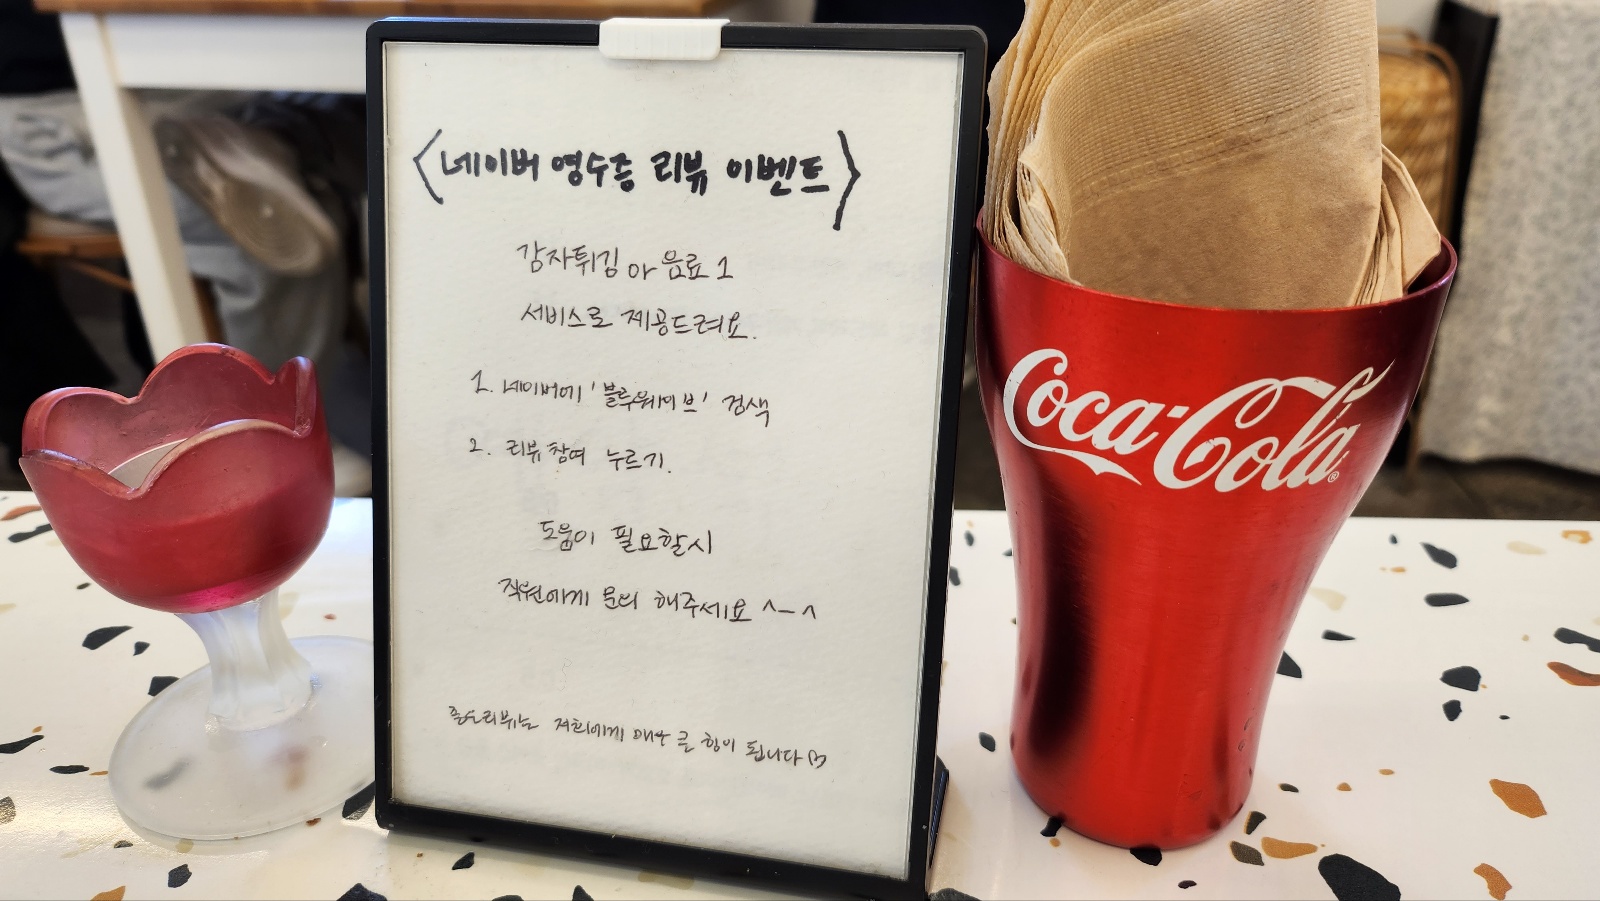 <네이버 영수증 리뷰 이벤트>
감자튀김 or 음료 1
서비스로 제공드려요.
1. 네이버에 '블루웨이브' 검색
2. 리뷰 참여 누르기.
도움이 필요할시
직원에게 문의 해주세요 ^-^
좋은리뷰는 저희에게 매우 큰 힘이 됩니다 ♡
Coca-Cola®